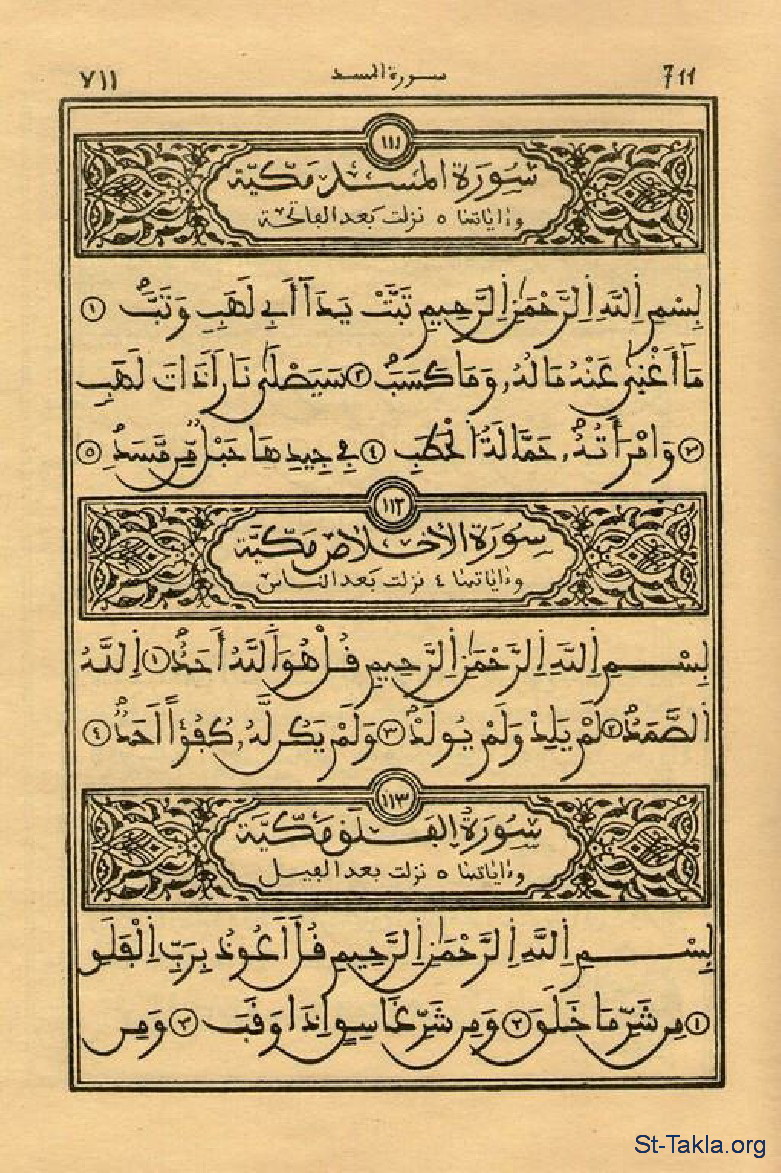 ٧١١ سورة المسد 711
١١١
سُورَةُ الْمَسَدِ مَكِّيَّة
وءاياتها ٥ نزلت بعد الفاتحة
بِسْمِ اِللَّهِ اِلرَّحْمَٰنِ اِلرَّحِيمِ تَبَّتْ يَدَآ أَبِي لَهَبٍ وَتَبَّ ١
مَآ أَغْنَىٰ عَنْهُ مَالُهُۥ وَمَا كَسَبَ ٢ سَيَصْلَىٰ نَاراً ذَاتَ لَهَبٍ
٣ وَامْرَأَتُهُۥ حَمَّالَةُ اُلْحَطَبِ ٤ فِي جِيدِهَا حَبْلٌ مِّن مَّسَدٍ ٥
١١٢
سُورَةُ الْإِخْلَاصِ مَكِّيَّة
وءاياتها ٤ نزلت بعد الناس
بِسْمِ اِللَّهِ اِلرَّحْمَٰنِ اِلرَّحِيمِ قُلْ هُوَ اَللَّهُ أَحَدٌ ١ اِللَّهُ
اُلصَّمَدُ ٢ لَمْ يَلِدْ وَلَمْ يُولَدْ ٣ وَلَمْ يَكُن لَّهُۥ كُفُؤاً اَحَدٌ ٤
١١٣
سُورَةُ الْفَلَقِ مَكِّيَّة
وءاياتها ٥ نزلت بعد الفيل
بِسْمِ اِللَّهِ اِلرَّحْمَٰنِ اِلرَّحِيمِ قُلْ أَعُوذُ بِرَبِّ اِلْفَلَقِ
١ مِن شَرِّ مَا خَلَقَ ٢ وَمِن شَرِّ غَاسِقٍ اِذَا وَقَبَ ٣ وَمِن
St-Takla.org